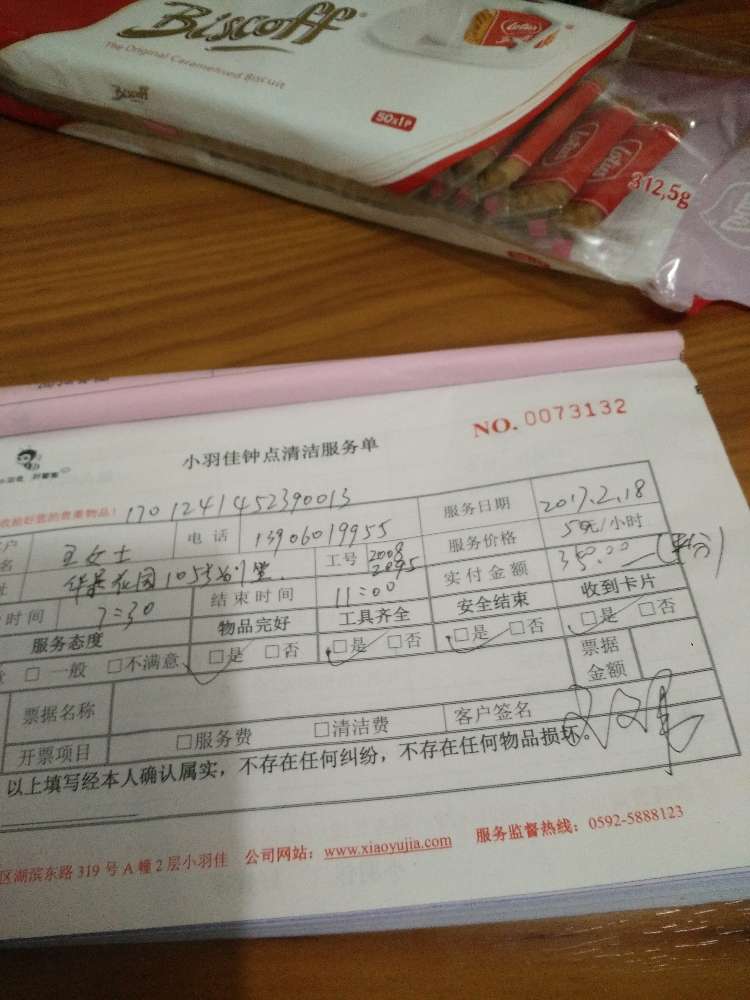 Biscoff
The Original Caramelised Biscuit
Lotus
Biscoff
50x1P
Lotus
Lotus
312,5g
NO. 0073132
小羽佳钟点清洁服务单
贵重物品! 1701241452390013
服务日期 2017.2.18
名 王女士 电话 13906019955
工号 2008 2095
服务价格 50元/小时
址 园105
时间 7:30 结束时间 11:00 实付金额 350.00
服务态度 物品完好 工具齐全 安全结束 收到卡片
□一般 □不满意 □是 □否 □是 □否 □是 □否 □是 □否
票据名称 票据金额
开票项目 □服务费 □清洁费 客户签名
以上填写经本人确认属实，不存在任何纠纷，不存在任何物品损坏。
区湖滨东路 319 号 A 幢 2 层小羽佳 公司网站：www.xiaoyujia.com 服务监督热线：0592-5888123